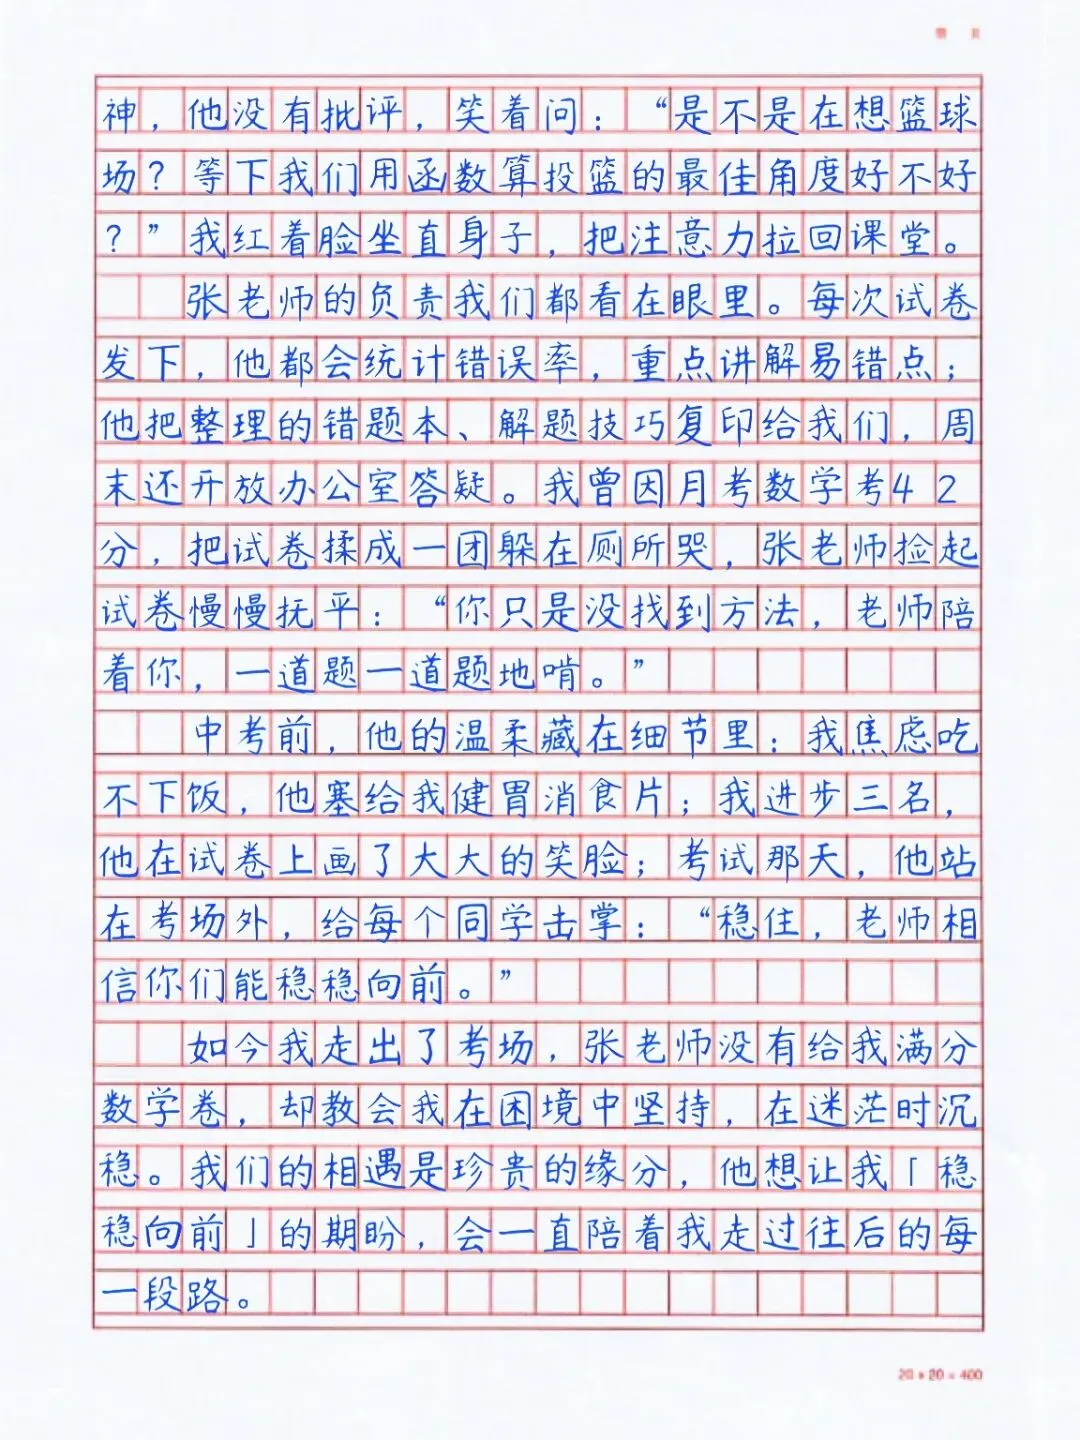 神，他没有批评，笑着问：“是不是在想篮球
场？等下我们用函数算投篮的最佳角度好不好
？”我红着脸坐直身子，把注意力拉回课堂。
张老师的负责我们都看在眼里。每次试卷
发下，他都会统计错误率，重点讲解易错点；
他把整理的错题本、解题技巧复印给我们，周
末还开放办公室答疑。我曾因月考数学考42
分，把试卷揉成一团躲在厕所哭，张老师捡起
试卷慢慢抚平：“你只是没找到方法，老师陪
着你，一道题一道题地啃。”
中考前，他的温柔藏在细节里：我焦虑吃
不下饭，他塞给我健胃消食片；我进步三名，
他在试卷上画了大大的笑脸；考试那天，他站
在考场外，给每个同学击掌：“稳住，老师相
信你们能稳稳向前。”
如今我走出了考场，张老师没有给我满分
数学卷，却教会我在困境中坚持，在迷茫时沉
稳。我们的相遇是珍贵的缘分，他想让我「稳
稳向前」的期盼，会一直陪着我走过往后的每
一段路。
20×20=400